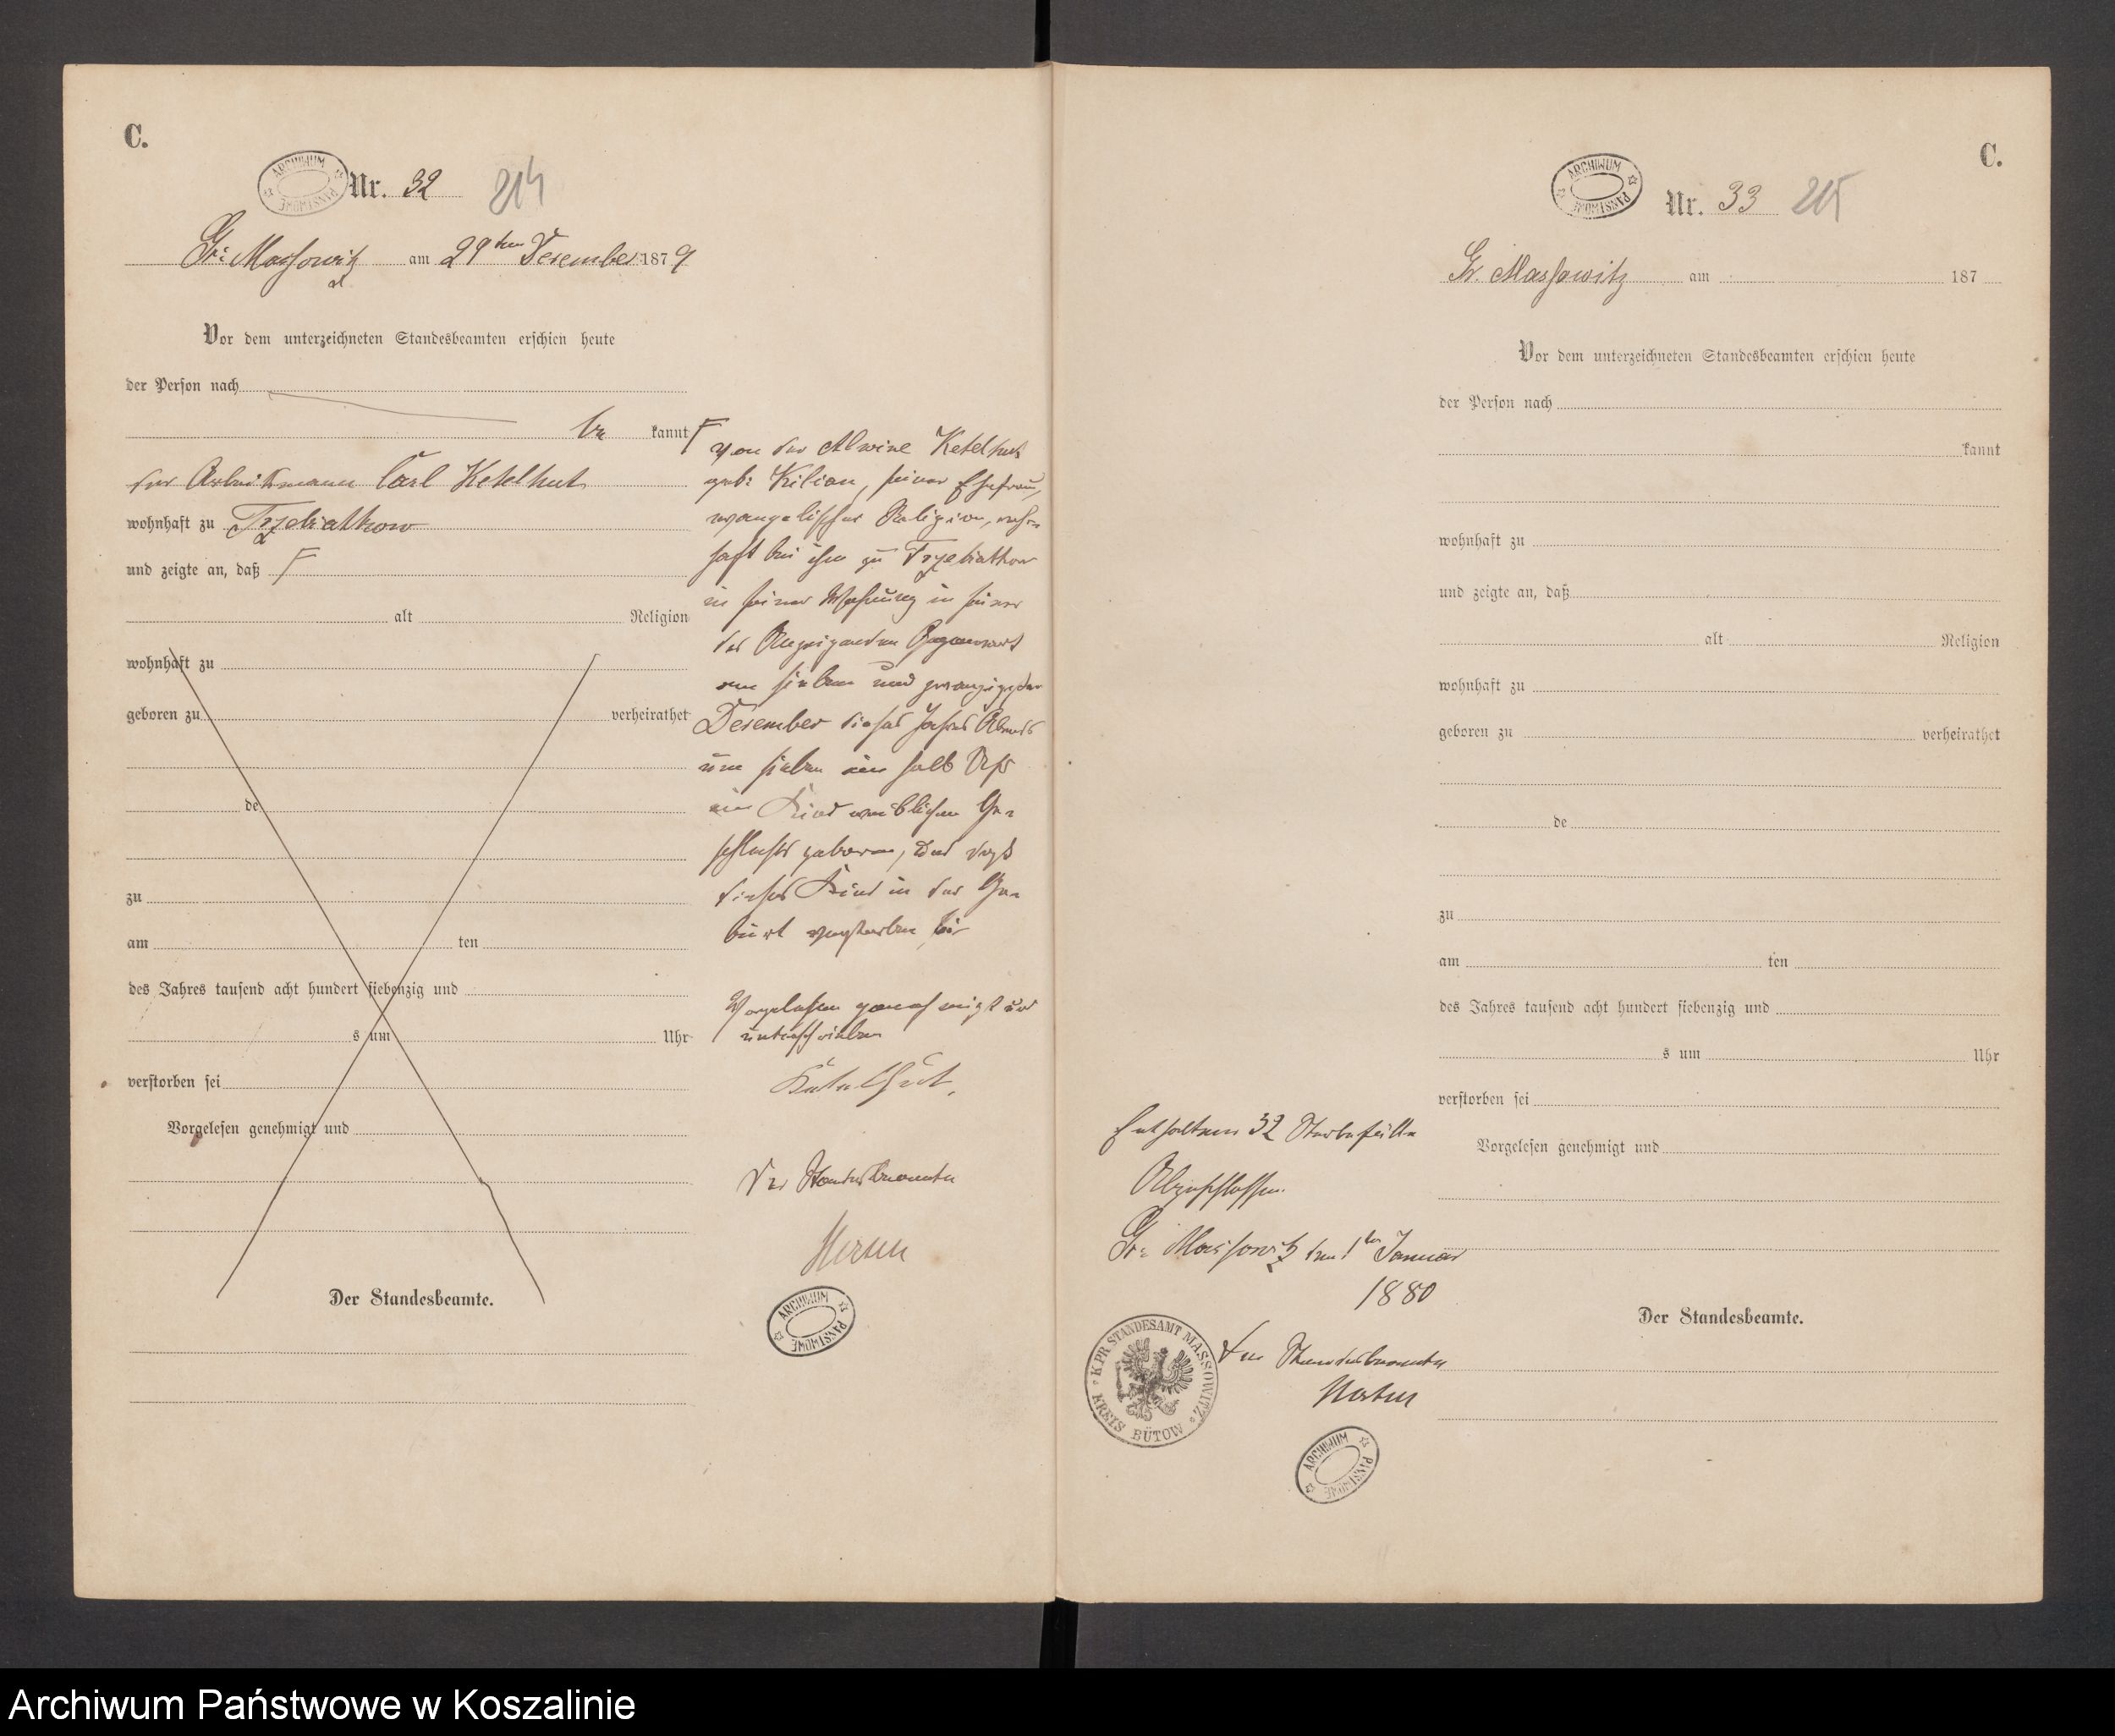 C.
ARCHIWUM PAŃSTWOWE
Nr. 32 214
Gr: Massowitz am 29ten Dezember 1879
Vor dem unterzeichneten Standesbeamten erschien heute
der Person nach
be kannt
der Arbeitsmann Carl Ketelhut
wohnhaft zu Trzebiatkow
und zeigte an, daß
alt Religion
wohnhaft zu
geboren zu verheirathet
de
zu
am ten
des Jahres tausend acht hundert siebenzig und
s um Uhr
verstorben sei
Vorgelesen genehmigt und
Der Standesbeamte.
von der Alwine Ketelhut
geb: Kilian, seiner Ehefrau,
evangelischer Religion, wohn-
haft bei ihm zu Trzebiatkow
in seiner Wohnung in seiner
des Anzeigenden Gegenwart
am sieben und zwanzigsten
Dezember dieses Jahres Abends
um sieben ein halb Uhr
ein Kind weiblichen Ge-
schlechts geboren, und daß
dieses Kind in der Ge-
burt verstorben sei
Vorgelesen genehmigt und
unterschrieben
Ketelhut.
Der Standesbeamte
ARCHIWUM PAŃSTWOWE
C.
ARCHIWUM PAŃSTWOWE
Nr. 33 215
Gr. Massowitz am 187
Vor dem unterzeichneten Standesbeamten erschien heute
der Person nach
kannt
wohnhaft zu
und zeigte an, daß
alt Religion
wohnhaft zu
geboren zu verheirathet
de
zu
am ten
des Jahres tausend acht hundert siebenzig und
s um Uhr
verstorben sei
Vorgelesen genehmigt und
Der Standesbeamte.
Enthaltend 32 Sterbefälle
Abgeschlossen.
Gr: Massowitz den 1ten Januar
1880
Der Standesbeamte
K. PR. STANDESAMT MASSOWITZ
KREIS BÜTOW
ARCHIWUM PAŃSTWOWE
Archiwum Państwowe w Koszalinie